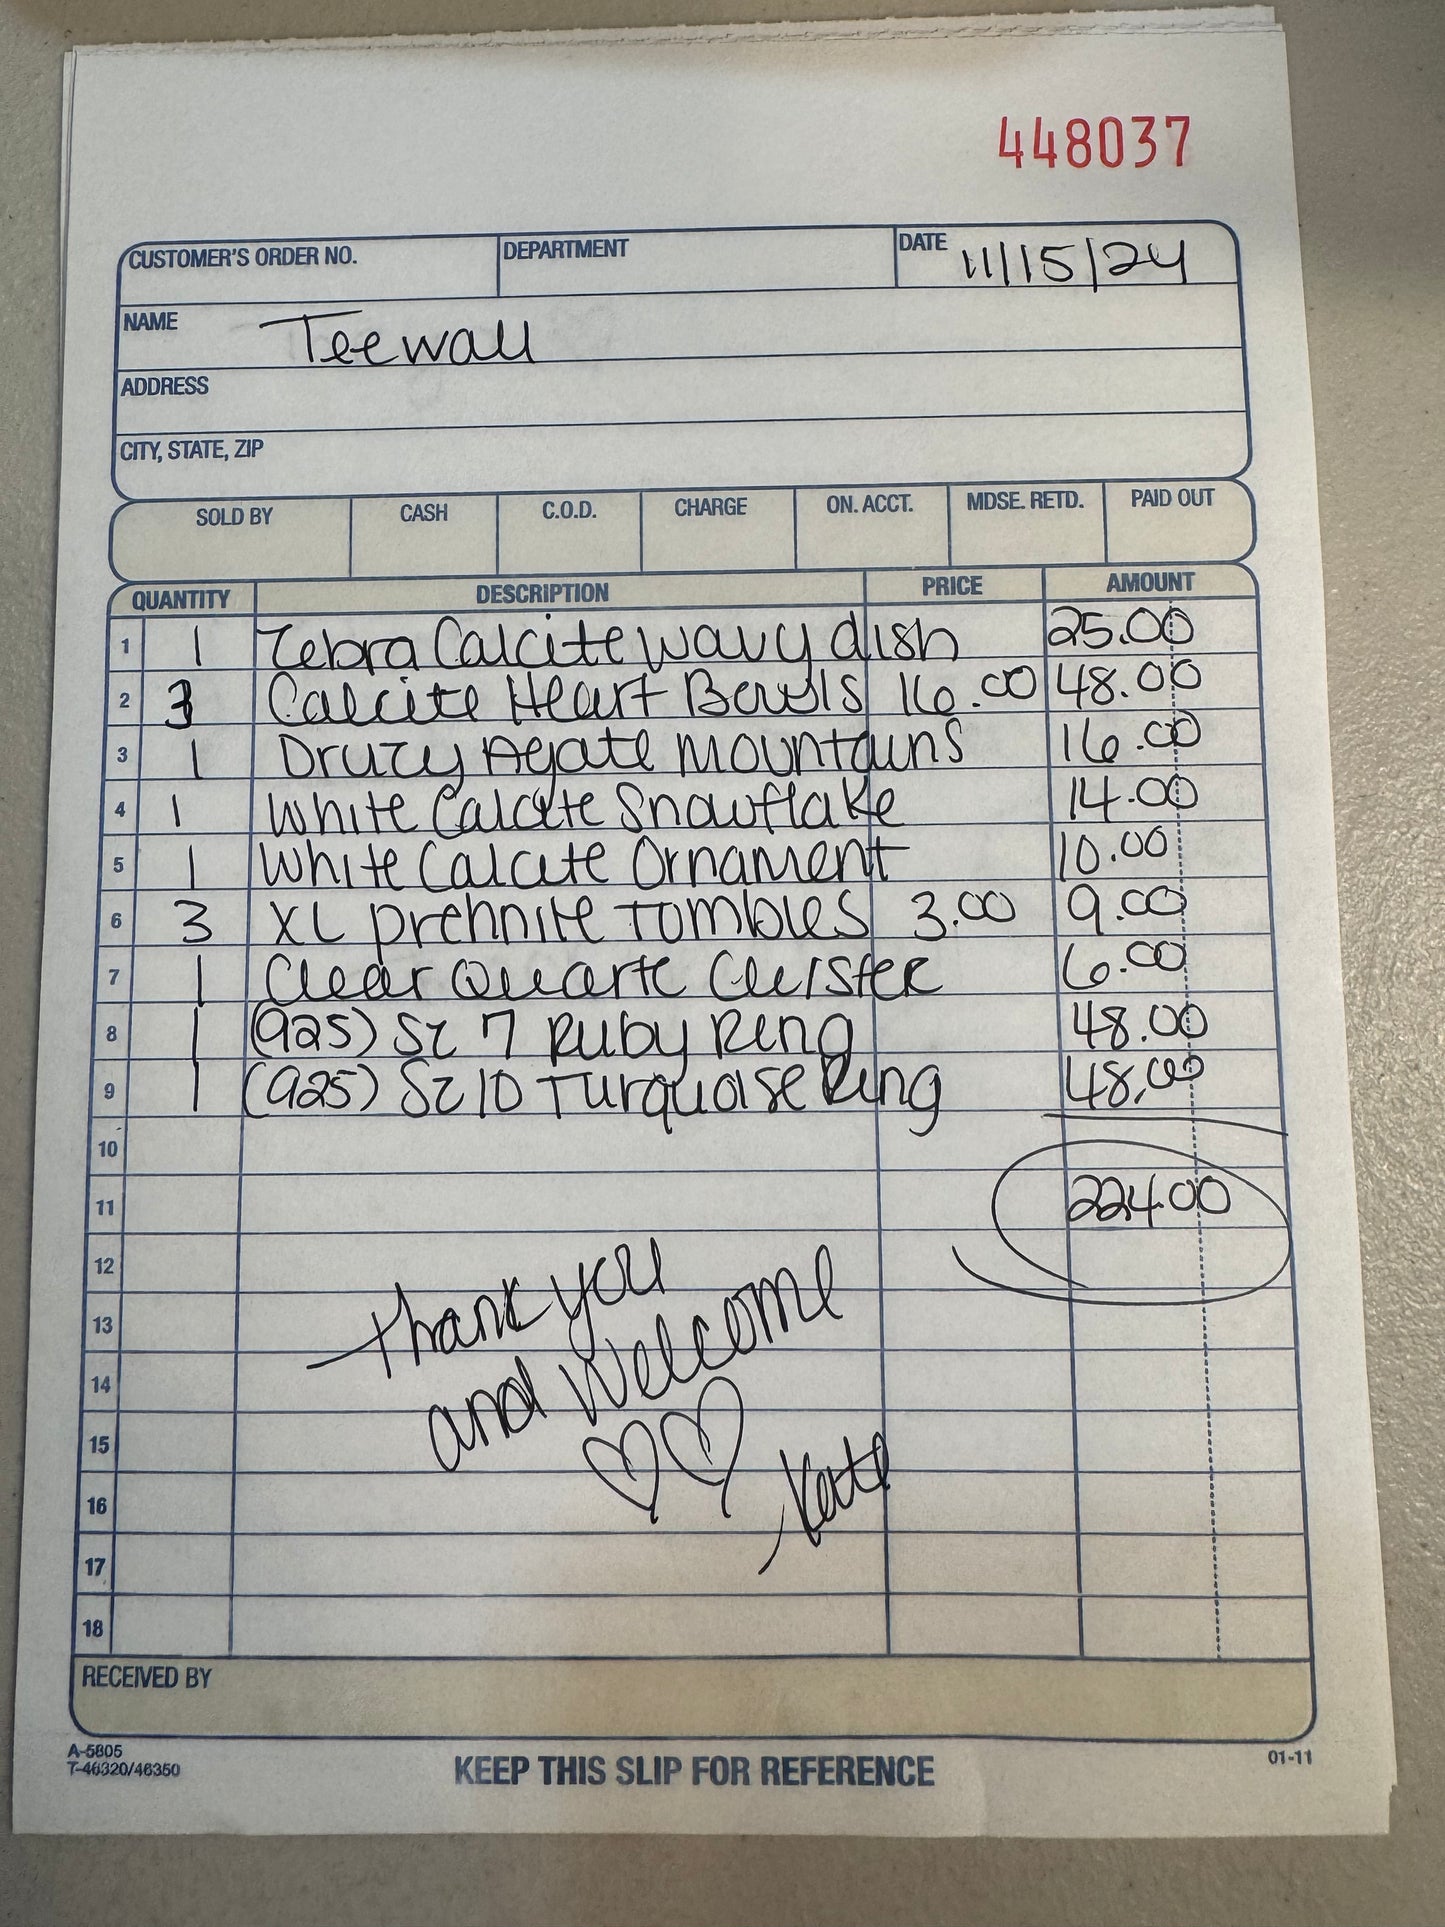 448037
CUSTOMER'S ORDER NO. DEPARTMENT DATE 11/15/24
NAME Teewall
ADDRESS
CITY, STATE, ZIP
SOLD BY CASH C.O.D. CHARGE ON. ACCT. MDSE. RETD. PAID OUT
QUANTITY DESCRIPTION PRICE AMOUNT
1 1 Zebra Calcite wavy dish 25.00
2 3 Calcite Heart Bowls 16.00 48.00
3 1 Druzy Agate Mountains 16.00
4 1 White Calcite Snowflake 14.00
5 1 White Calcite Ornament 10.00
6 3 XL prehnite Tombles 3.00 9.00
7 1 Clear Quartz Cluster 6.00
8 1 (925) Sz 7 Ruby Ring 48.00
9 1 (925) Sz 10 Turquoise Ring 48.00
10
11 224.00
12
Thank you
13
and Welcome
14
15
Kate
16
17
18
RECEIVED BY
A-5805
T-46320/46350
KEEP THIS SLIP FOR REFERENCE
01-11